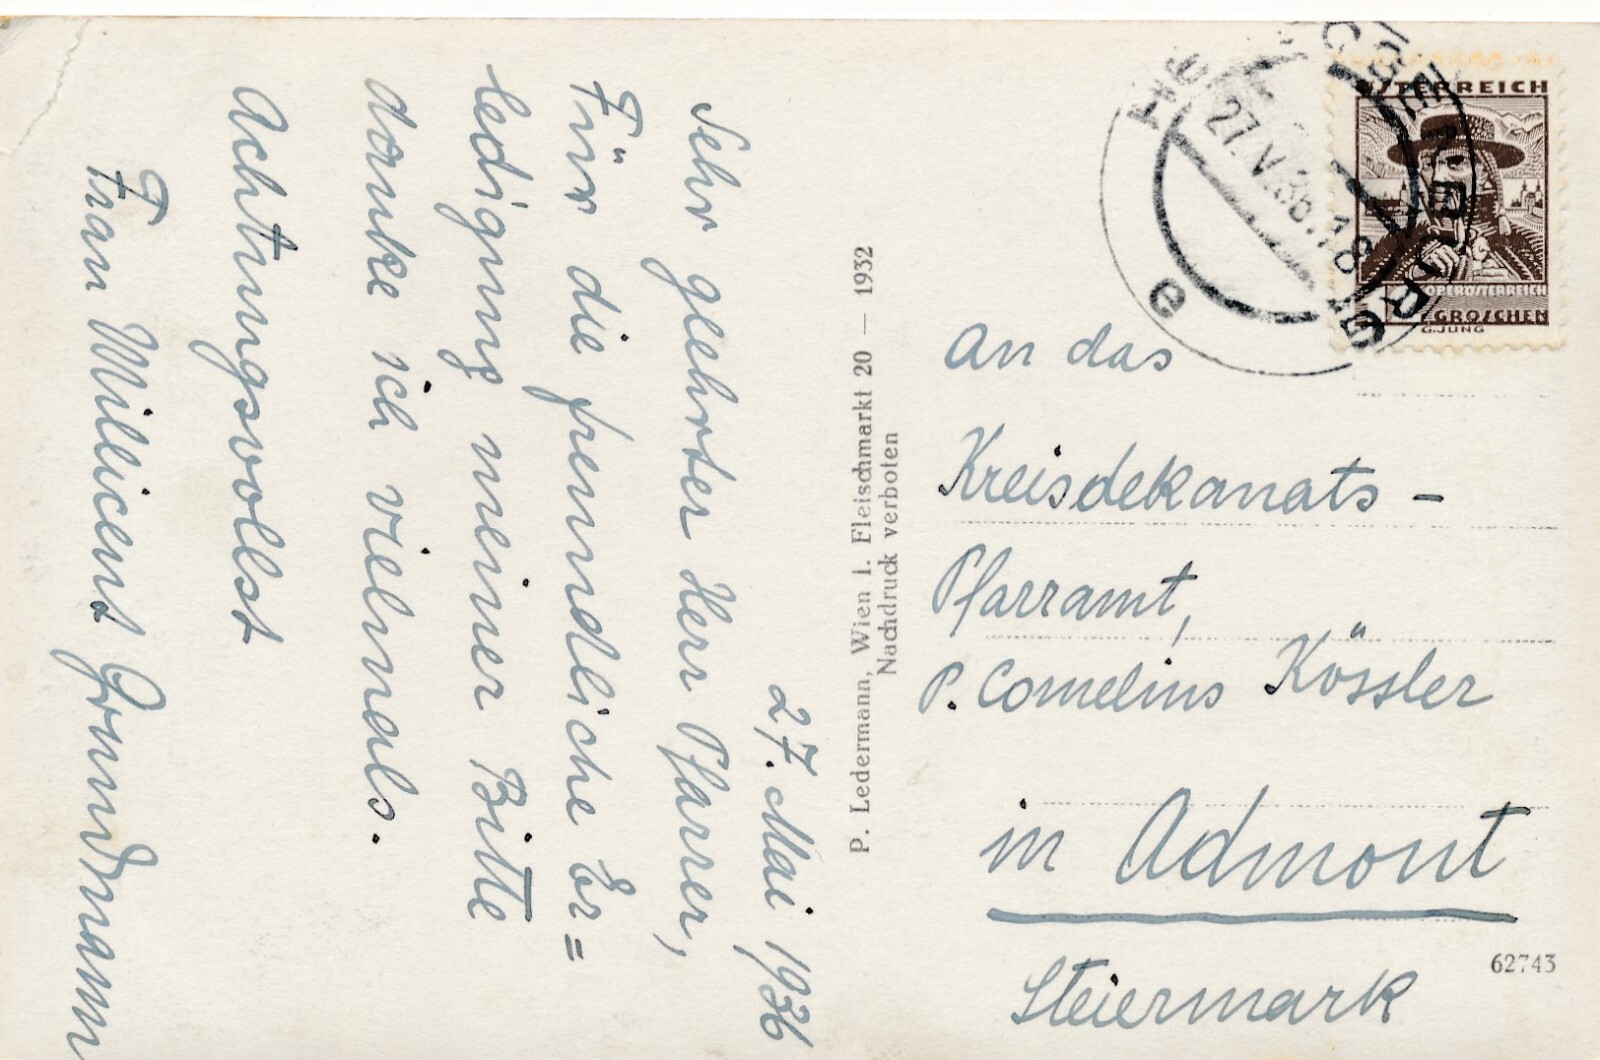 27. Mai 1936
Sehr geehrter Herr Pfarrer,
Für die freundliche Er=
ledigung meiner Bitte
danke ich vielmals.
Achtungsvollst
Frau Millicent Grundmann
P. Ledermann, Wien I. Fleischmarkt 20 — 1932
Nachdruck verboten
27.V.36.18
e
ÖSTERREICH
OBERÖSTERREICH
GROSCHEN
G.JUNG
An das
Kreisdekanats –
Pfarramt,
P. Cornelius Kössler
in Admont
Steiermark
62743